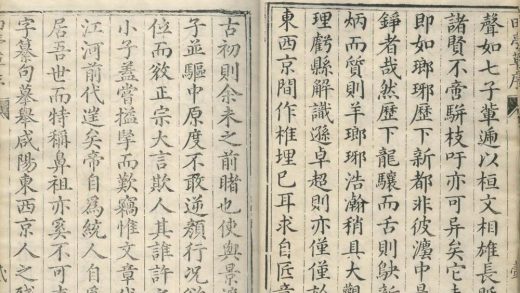 聲如七子輩遍以桓文相雄長
諸賢不啻駢枝吁亦可异矣它
即如瑯琊歷下新都非彼瀍中
錚者哉然歷下龍驤而舌則缺新
炳而質則羊瑯琊浩瀚稍具大觀
理虧縣解識遜卓超則亦僅僅於
東西京間作椎埋已耳求自匠意
古初則余未之前睹也使與景
子並驅中原度不敢逆顏行况
位而欲正宗大言欺人其誰許
小子蓋嘗搤擥而歎竊惟文章
江河前代逴矣帝自爲統人自
居吾世而特稱鼻祖亦奚不可
字纂句摹舉咸陽東西京人之殘